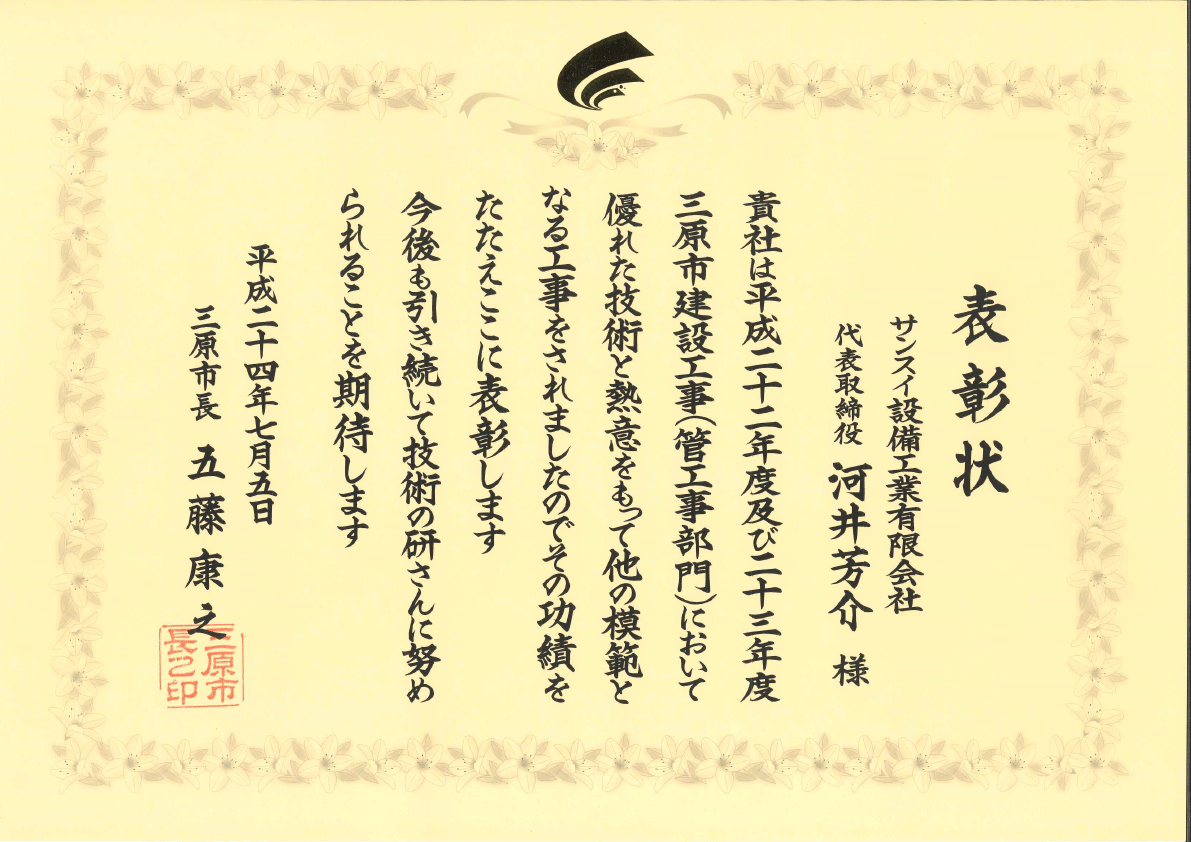 表彰状
サンスイ設備工業有限会社
代表取締役 河井芳介 様
貴社は平成二十二年度及び二十三年度
三原市建設工事(管工事部門)において
優れた技術と熱意をもって他の模範と
なる工事をされましたのでその功績を
たたえここに表彰します
今後も引き続いて技術の研さんに努め
られることを期待します
平成二十四年七月五日
三原市長 五藤康之
三原市
長之印